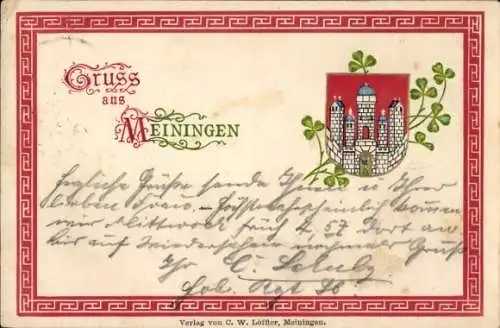 Gruss
aus
MEININGEN
Herzliche Grüße sende Ihnen u Ihrer
lieben Frau. kommen
wir Mittwoch früh 4 57 dort an
bis auf Wiedersehen nochmals Gruß
Ihr C. Schulz
Verlag von C. W. Löffler, Meiningen.